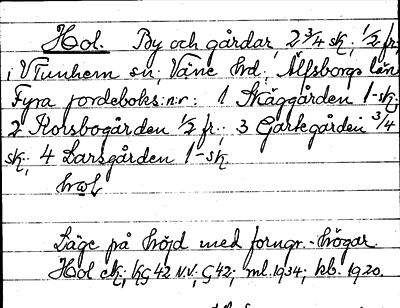 Hol. By och gårdar, 2 3/4 sk; 1/2 fr.
i V Tunhem sn, Väne hd, Älfsborgs län
Fyra jordeboks:n:r: 1 Skäggården 1-sk;
2 Korsbogården 1/2 fr.; 3 Garkegården 3/4
sk; 4 Larsgården 1-sk.
hωl
Läge på höjd med forngr.-högar.
Hol ek; KG 42 N.V.; G 42; ml. 1934; hb. 1920.